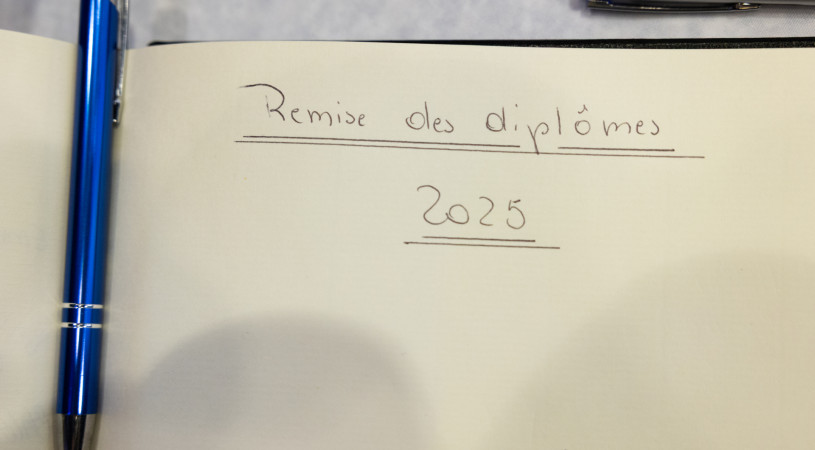 Remise des diplômes
2025